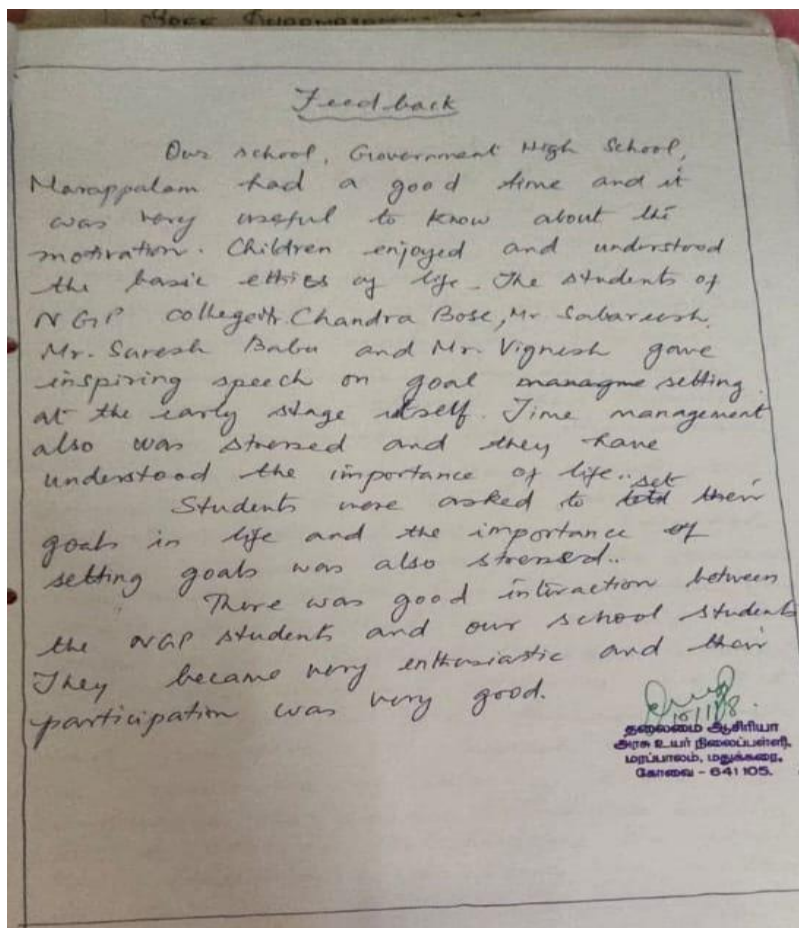 Feedback
Our school, Government High School,
Marappalam had a good time and it
was very useful to know about the
motivation. Children enjoyed and understood
the basic ethics of life. The students of
NGP college Mr. Chandra Bose, Mr Sabareesh,
Mr. Suresh Babu and Mr. Vignesh gave
inspiring speech on goal managme setting
at the early stage itself. Time management
also was stressed and they have
understood the importance of life..
Students were asked to set their
goals in life and the importance of
setting goals was also stressed..
There was good interaction between
the NGP students and our school students
They became very enthusiastic and their
participation was very good.
தலைமை ஆசிரியர்
அரசு உயர் நிலைப்பள்ளி,
மரப்பாலம், மதுக்கரை,
கோவை - 641 105.